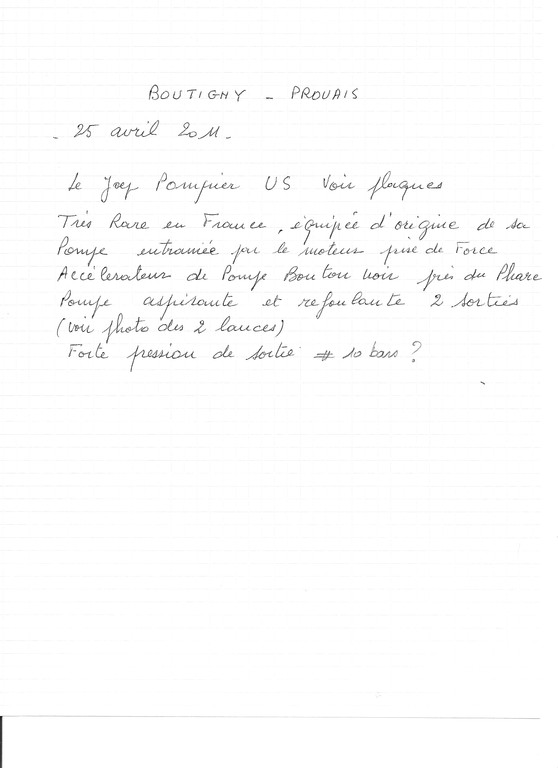 BOUTIGNY - PROUAIS
- 25 avril 2011 -
Le Jeep Pompier US Voir plaques
Très Rare en France, équipée d'origine de sa
Pompe entrainée par le moteur prise de Force
Accélerateur de Pompe Bouton noir près du Phare
Pompe aspirante et refoulante 2 sorties
(voir photo des 2 lances)
Forte pression de sortie # 10 bars ?